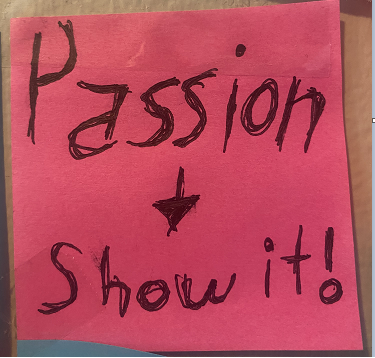 Passion
↓
Show it!